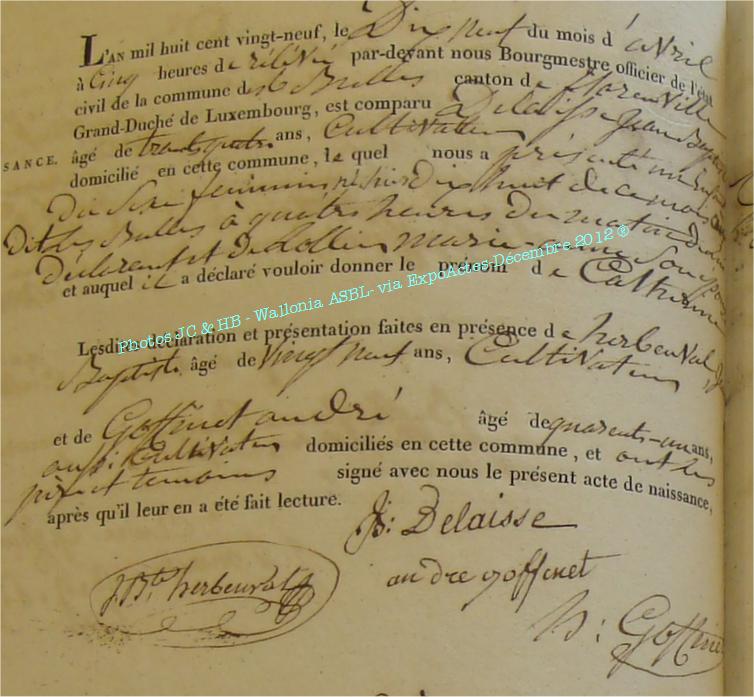 L'AN mil huit cent vingt-neuf, le Dix neuf du mois d'avril
à Cinq heures de rélévé par-devant nous Bourgmestre officier de l'état
civil de la commune des Bulles canton de florenville
Grand-Duché de Luxembourg, est comparu Delaisse Jean Baptiste
SANCE. âgé de trente quatre ans, Cultivateur
domicilié en cette commune, lequel nous a présenté un Enfant
Du Sexe feminin né hier Dix huit de ce mois
dit les Bulles à quatre heures du matin
Déclarent et de Lollin marie Son épouse
et auquel il a déclaré vouloir donner le prénom de Catherine
Lesdites déclaration et présentation faites en présence de herbeuval, J
Baptiste âgé de vingt neuf ans, Cultivateur
et de Goffinet andré âgé de quarente-un ans,
aussi Cultivateur domiciliés en cette commune, et ont les
père et temoins signé avec nous le présent acte de naissance,
après qu'il leur en a été fait lecture.
JB: Delaisse
J Bte herbeuval
andre goffinet
: Goffinet
Photos JC & HB - Wallonia ASBL- via ExpoActes-Décembre 2012 ®